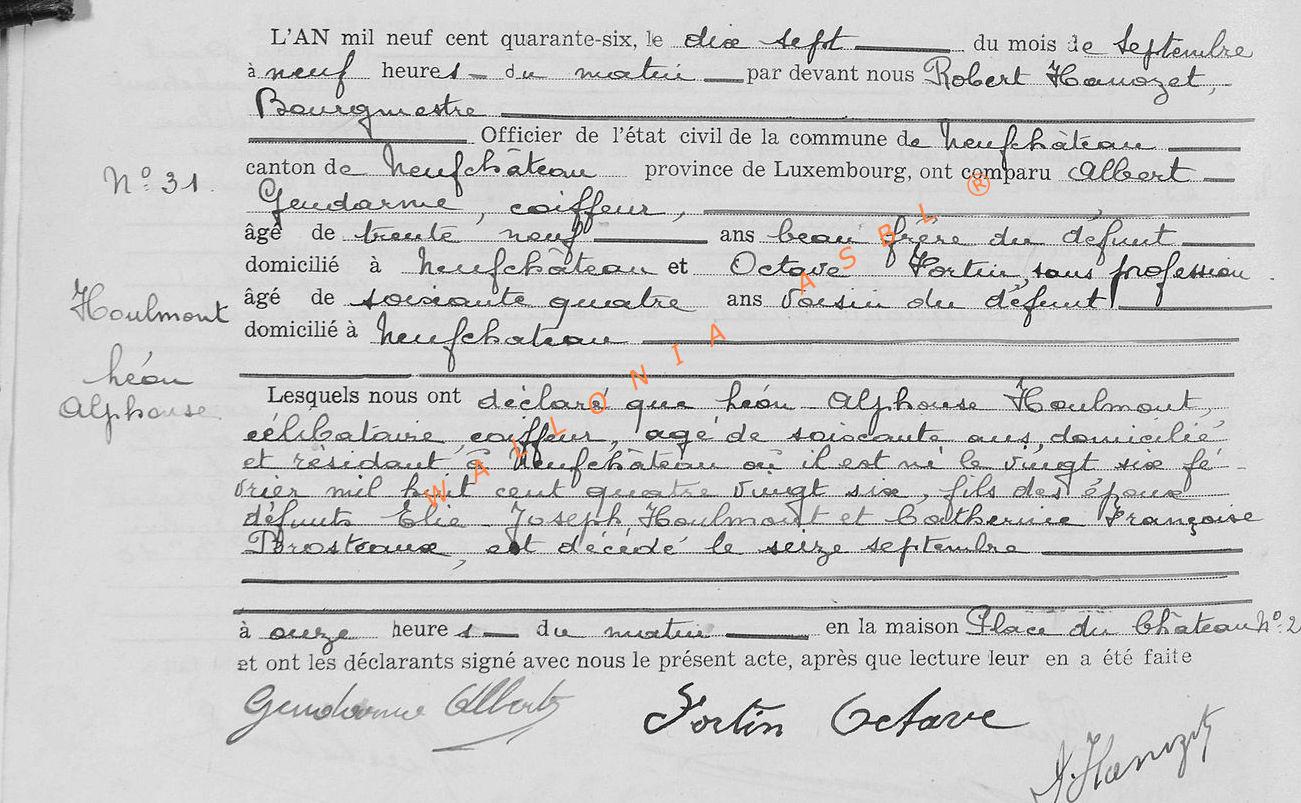 L'AN mil neuf cent quarante-six, le dix sept du mois de Septembre
à neuf heures du matin par devant nous Robert Hanozet,
Bourgmestre
Officier de l'état civil de la commune de Neufchâteau
N° 31. canton de Neufchâteau province de Luxembourg, ont comparu Albert
Gendarme, coiffeur,
âgé de trente neuf ans beau frère du défunt
domicilié à Neufchâteau et Octave Fortin, sans profession
âgé de soixante quatre ans voisin du défunt
Houlmont
domicilié à Neufchateau
Léon
Alphonse
Lesquels nous ont déclaré que Léon Alphonse Houlmont,
célibataire, coiffeur, agé de soixante ans, domicilié
et résidant à Neufchâteau où il est né le vingt six fé-
vrier mil huit cent quatre vingt six, fils des époux
défunts Elie Joseph Houlmont et Catherine Françoise
Brosteaux, est décédé le seize septembre
à onze heures du matin en la maison Place du Château N° 2
et ont les déclarants signé avec nous le présent acte, après que lecture leur en a été faite
Gendarme Albert Fortin Octave
Hanozet
WALLONIA ASBL ®